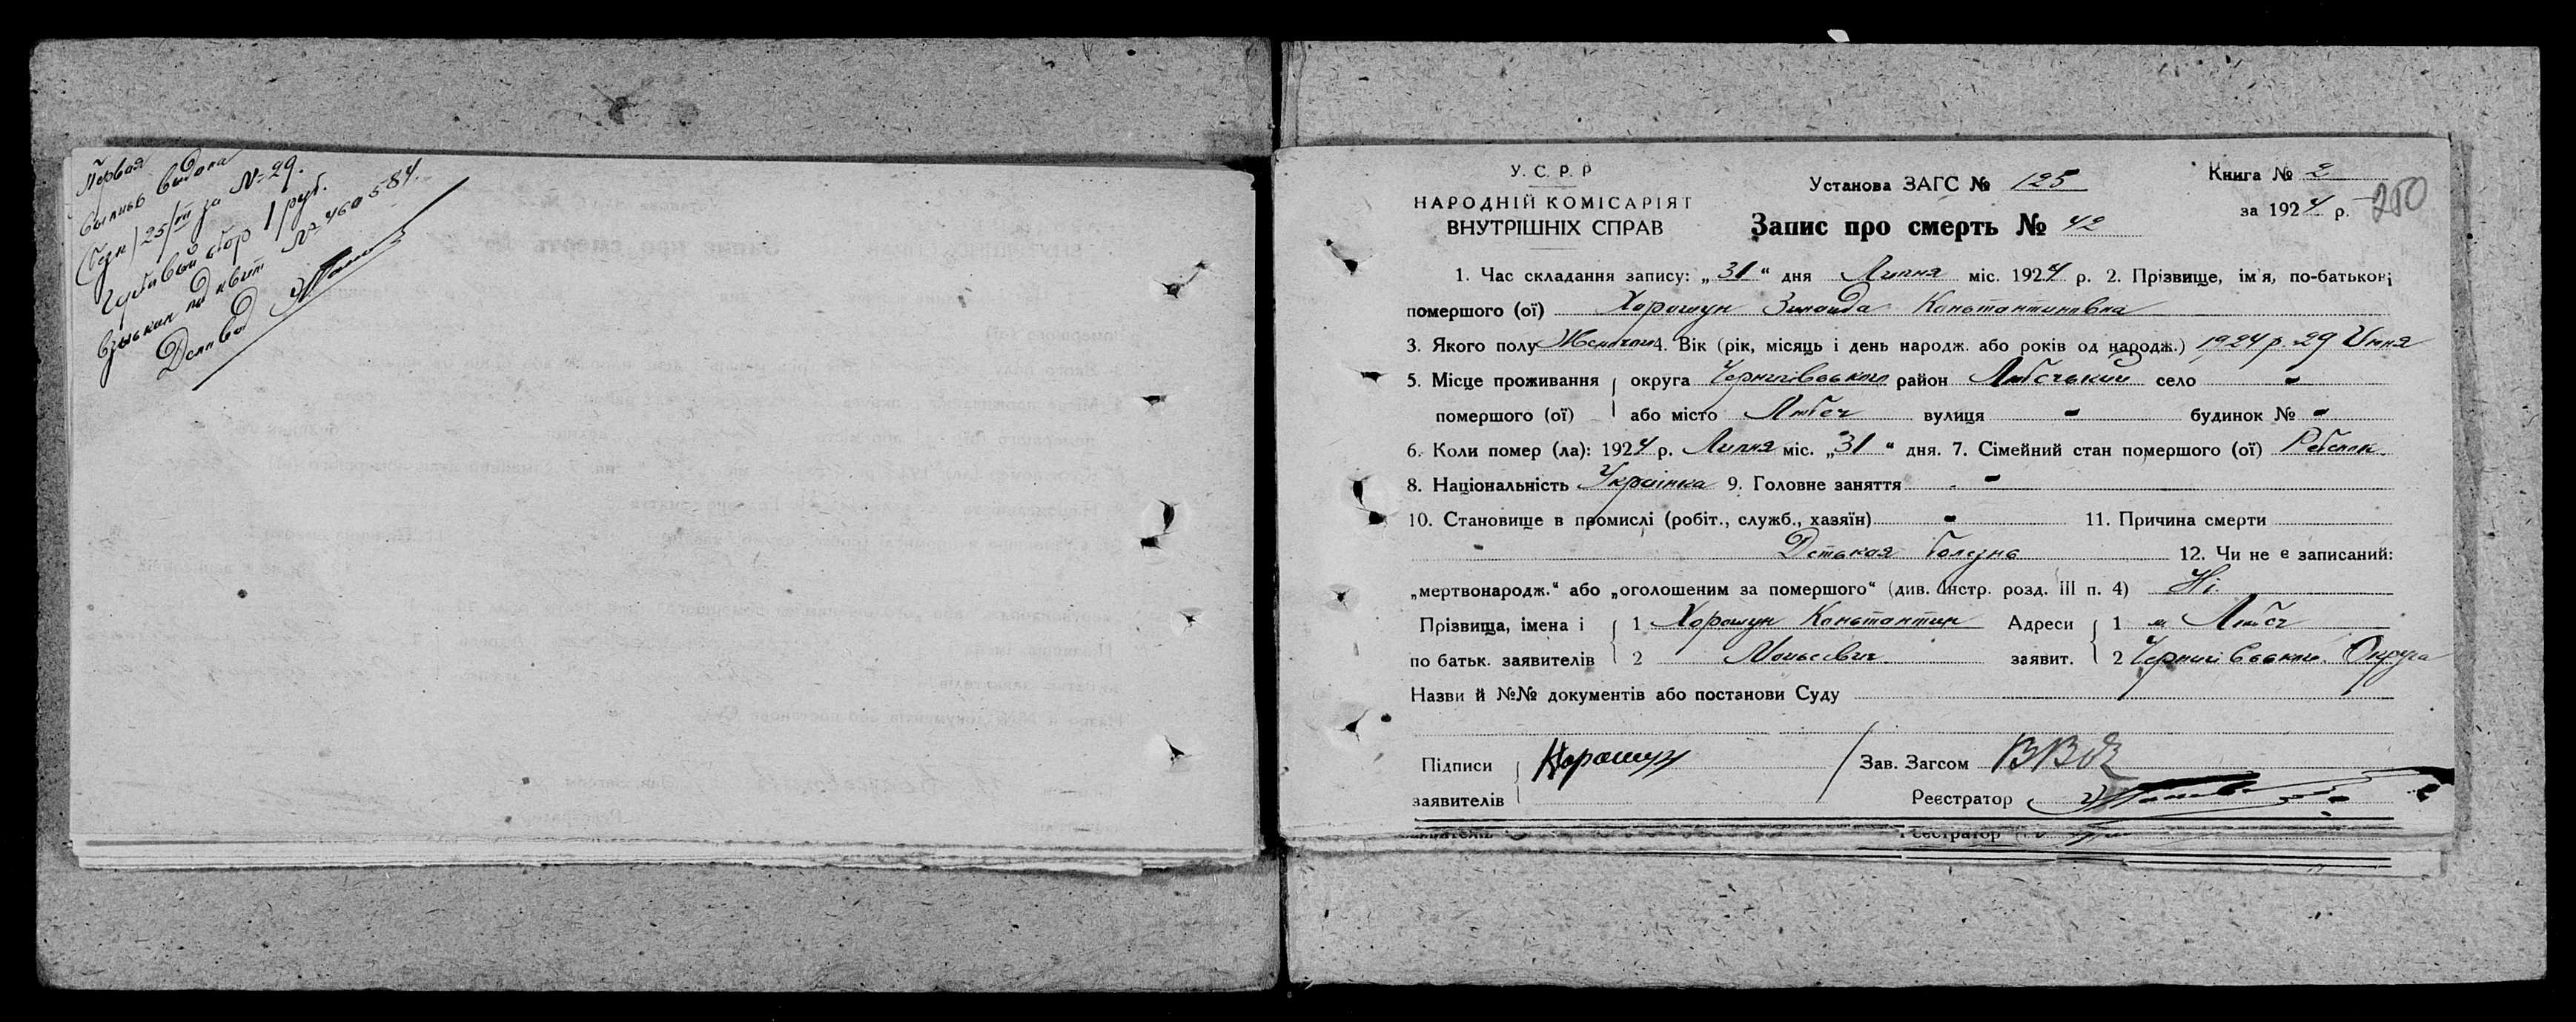 Первая
выпись выдана
25/III за № 29.
сбор 1 руб.
взыскан по квит № 460584.
У. С. Р. Р
НАРОДНІЙ КОМІСАРІЯТ
ВНУТРІШНІХ СПРАВ
Установа ЗАГС № 125
Запис про смерть № 42
Книга № 2
за 1924 р.
250
1. Час складання запису: „31“ дня Липня міс. 1924 р. 2. Прізвище, ім'я, по-батькові
помершого (ої) Хорошун Зинаида Константиновна
3. Якого полу 4. Вік (рік, місяць і день народж. або років од народж.) 1924 р. 29
5. Місце проживання округа Чернигівського район Любечький село -
помершого (ої) або місто Любеч вулиця - будинок № -
6. Коли помер (ла): 1924 р. Липня міс. „31“ дня. 7. Сімейний стан помершого (ої) Ребенок
8. Національність Українка 9. Головне заняття -
10. Становище в промислі (робіт., служб., хазяїн) - 11. Причина смерти
Детская болезнь 12. Чи не є записаний:
„мертвонародж.“ або „оголошеним за помершого“ (див. Інстр. розд. III п. 4) Ні.
Прізвища, імена і 1 Хорошун Константин Адреси 1 м Любеч
по батьк. заявителів 2 Моисеевич заявит. 2 Округа
Назви й №№ документів або постанови Суду
Підписи Хорошун Зав. Загсом
заявителів Реєстратор
Реєстратор